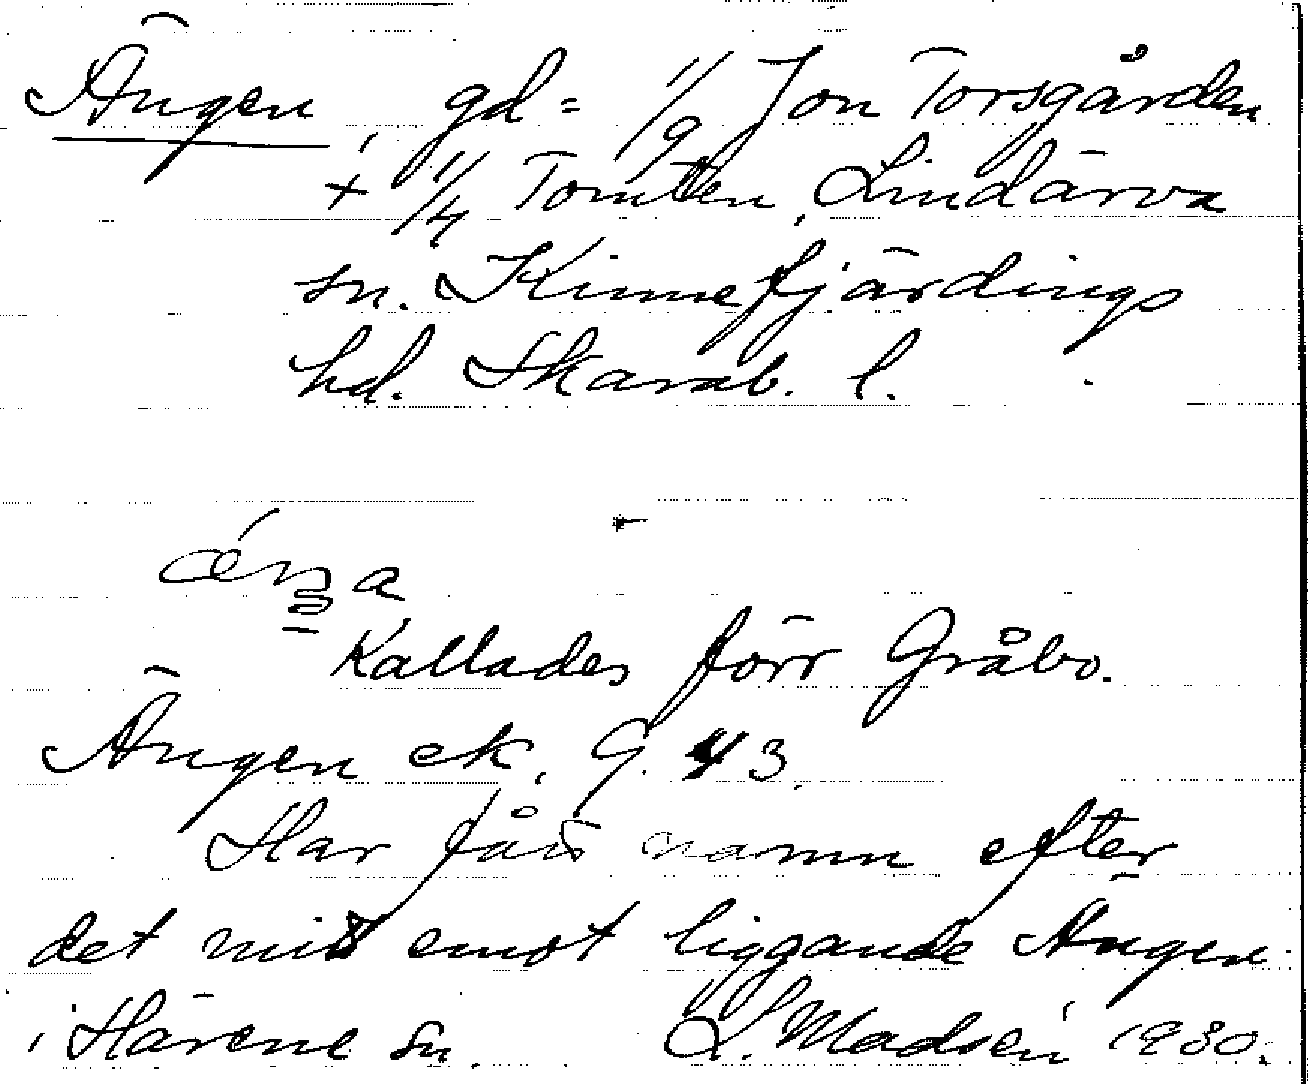 Ängen gd = 1/9 Jon Torsgården
+ 1/4 Tomten, Lindärva
sn. Kinnefjärdings
hd. Skarab. l.
Kallades förr Gråbo.
Ängen ek. G. 43
Har fått namn efter
det mitt emot liggande Ängen
i Härene sn. L. Madsén 1930.